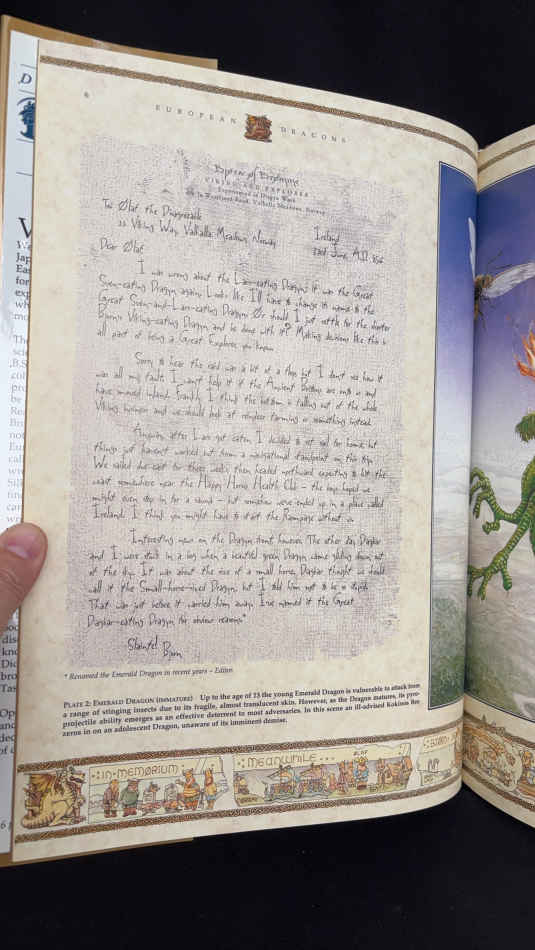 6
EUROPEAN DRAGONS
Bjorn of Bromme
VIKING AND EXPLORER
Experienced in Dragon Ways
Valhalla Meadows, Norway
To: Ølaf the Disagreeable
22 Viking Way, Valhalla Meadows, Norway
Ireland
23rd June, A.D.
Dear Ølaf
I was wrong about the Lion-eating Dragon; it was the Great
Swan-eating Dragon again. Looks like I'll have to change its name to the
Great Swan-and-Lion-eating Dragon. Or should I just settle for the shorter
Bjorn's Viking-eating Dragon and be done with it? Making decisions like this is
all part of being a Great Explorer, you know.
Sorry to hear the raid was a bit of a flop, but I don't see how it
was all my fault. I can't help it if the Ancient Britons are onto us and
have moved inland. Frankly, I think the bottom is falling out of the whole
Viking business and we should look at reindeer farming or something instead.
Anyway, after I'd got eaten, I decided to set sail for home, but
things just haven't worked out from a navigational standpoint on this trip.
We sailed due east for three weeks then headed northward expecting to hit the
coast somewhere near the Happy Horns Health Club – the crew hoped we
might even stop in for a sauna – but somehow we've ended up in a place called
Ireland. I think you might have to start the Rampage without us.
Interesting news on the Dragon front, however. The other day, Dagbar
and I were stuck in a bog when a beautiful green Dragon came gliding down out
of the sky. It was about the size of a small horse. Dagbar thought we should
call it the Small-horse-sized Dragon, but I told him not to be so stupid.
That was just before it carried him away. I've named it the Great
Dagbar-eating Dragon for obvious reasons*
Slainte!
Bjorn
* Renamed the Emerald Dragon in recent years – Editor.
PLATE 2: EMERALD DRAGON (IMMATURE) Up to the age of 15 the young Emerald Dragon is vulnerable to attack from
a range of stinging insects due to its fragile, almost translucent skin. However, as the Dragon matures, its pyro-
projectile ability emerges as an effective deterrent to most adversaries. In this scene an ill-advised Kokinsis Bee
zeros in on an adolescent Dragon, unaware of its imminent demise.
IN·MEMORIUM
MEANWHILE ...